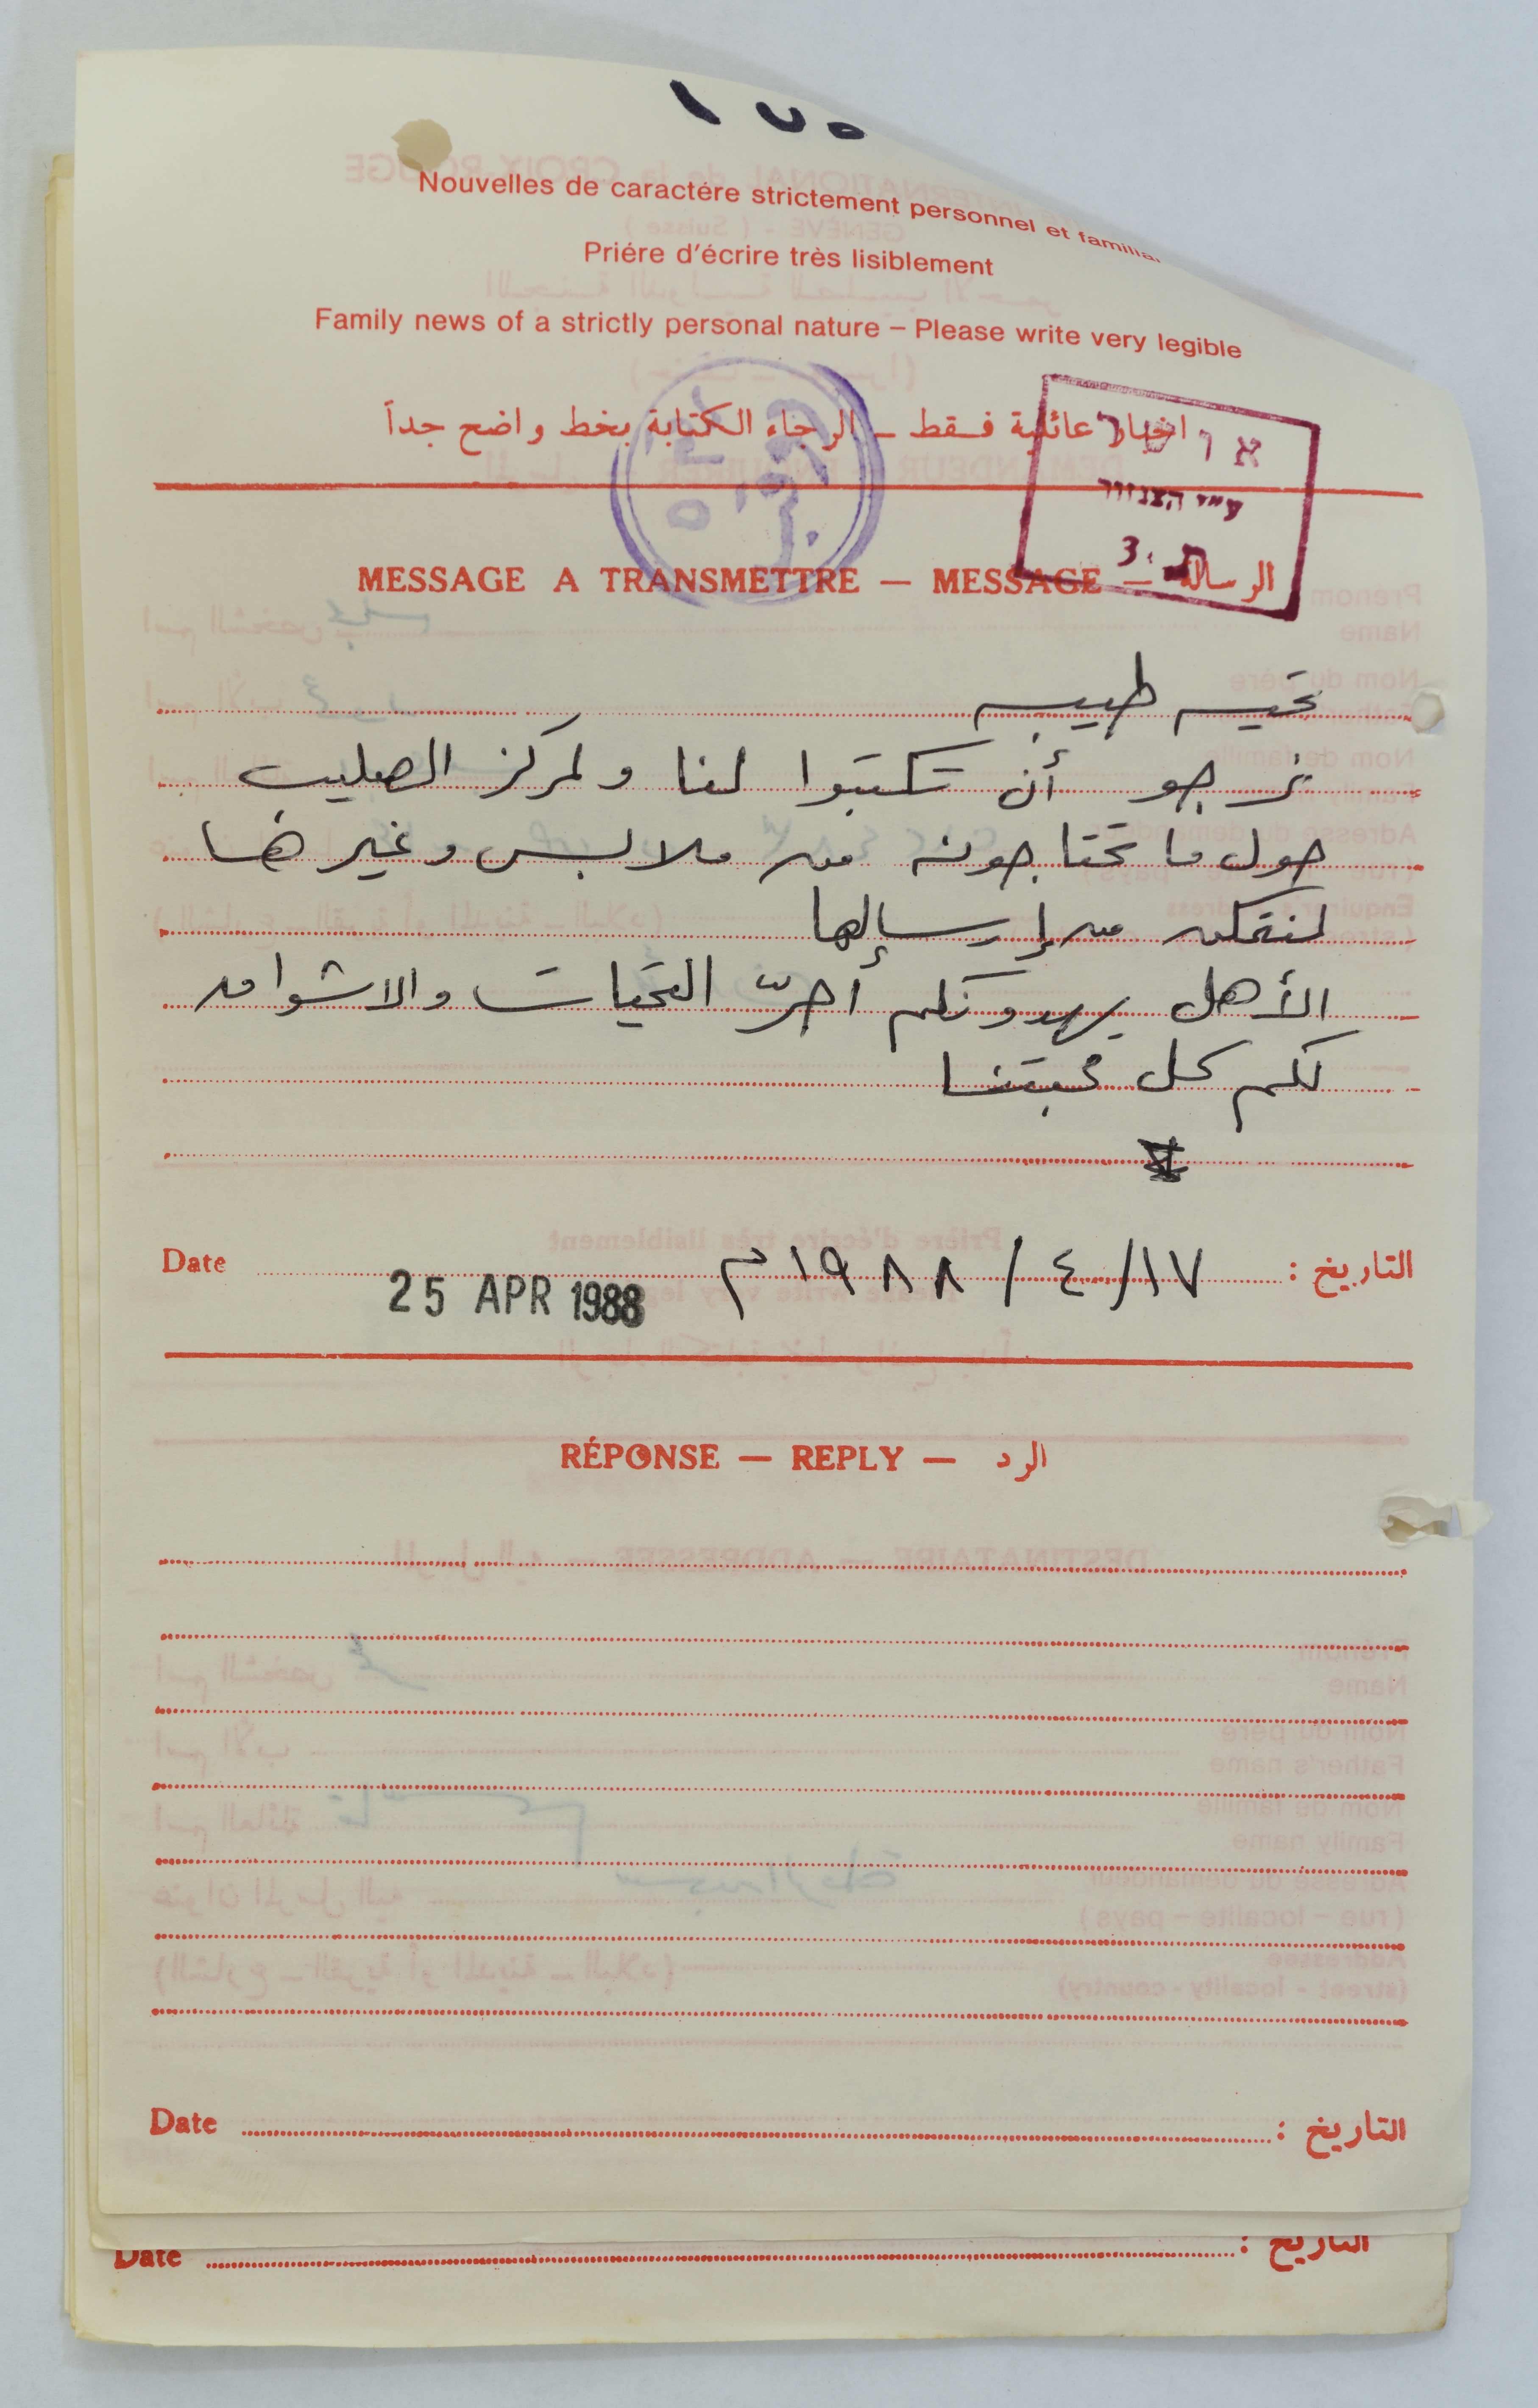 ١٧٥
Nouvelles de caractére strictement personnel et familia
Priére d'écrire très lisiblement
Family news of a strictly personal nature – Please write very legible
اخبار عائلية فـقط ـ الرجاء الكتابة بخط واضح جداً
אושר
ע"י הצנזור
MESSAGE A TRANSMETTRE — MESSAGE — الرسالة
تحيه طيبه
نرجو أن تكتبوا لنا ولمركز الصليب
حول ما تحتاجونه من ملابس وغيرها
لنتمكن من إرسالها
الأهل يهدونكم أحرّ التحيات والاشواق
لكم كل محبتنا
Date ١٧/٤/١٩٨٨م التاريخ :
25 APR 1988
RÉPONSE — REPLY — الرد
Date التاريخ :
Date التاريخ :